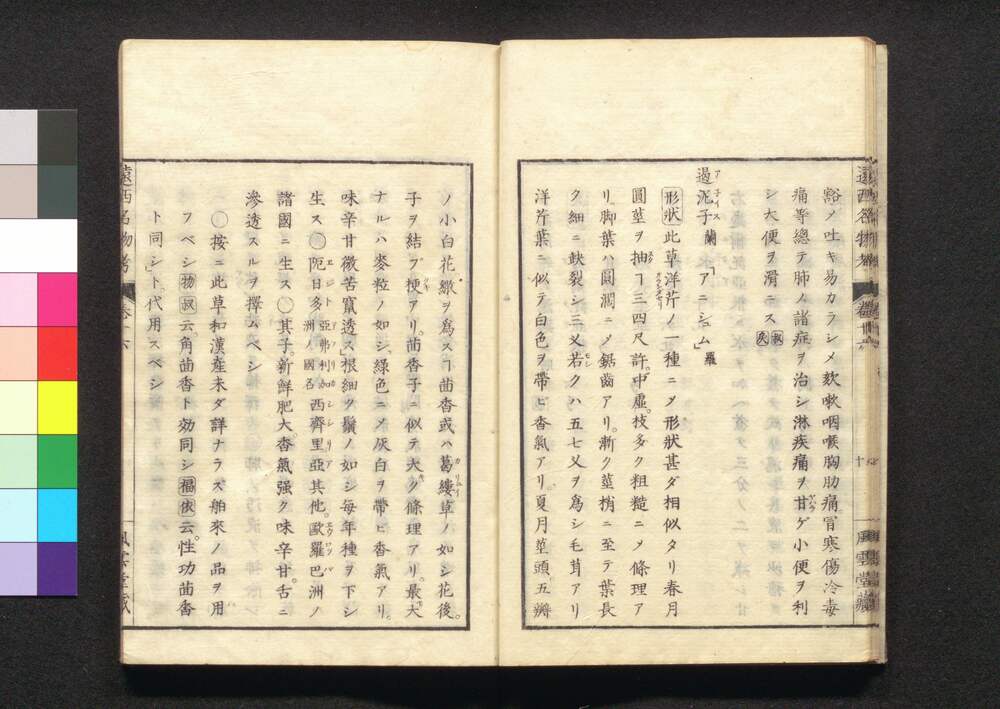 豁ノ吐キ易カラシメ欬嗽咽喉胸肋痛冒寒傷冷毒
痛等總テ肺ノ諸症ヲ治シ淋疾痛ヲ甘ゲ小便ヲ利
シ大便ヲ滑ニス
過泥子蘭「アニシュム」羅
形狀此草洋芹ノ一種ニメ形狀甚ダ相似タリ春月
圓莖ヲ抽ヿ三四尺許中虛枝多ク粗糙ニメ條理ア
リ脚葉ハ圓濶ニメ鋸齒アリ漸ク莖梢ニ至テ葉長
ク細ニ缺裂シ三叉若クハ五七叉ヲ爲シ毛茸アリ
洋芹葉ニ似テ白色ヲ帶ヒ香氣アリ夏月莖頭五瓣
ノ小白花繖ヲ爲スヿ茴香或ハ葛縷草ノ如シ花後
子ヲ結ブ梗アリ茴香子ニ似テ大ク條理アリ最大
ナルハ麥粒ノ如シ綠色ニメ灰白ヲ帶ヒ香氣アリ
味辛甘微苦竄透ス根細ク鬚ノ如シ每年種ヲ下シ
生ス○阨日多亞弗利加洲ノ國名西齊里亞其他歐羅巴洲ノ
諸國ニ生ス○其子新鮮肥大香氣强ク味辛甘舌ニ
滲透スルヲ擇ムベシ
○按ニ此草和漢產未ダ詳ナラズ舶來ノ品ヲ用
フベシ物叔云角茴香ト効同シ福依云性功茴香
ト同シト代用スベシ
遠西名物考
卷十六
風雲堂藏